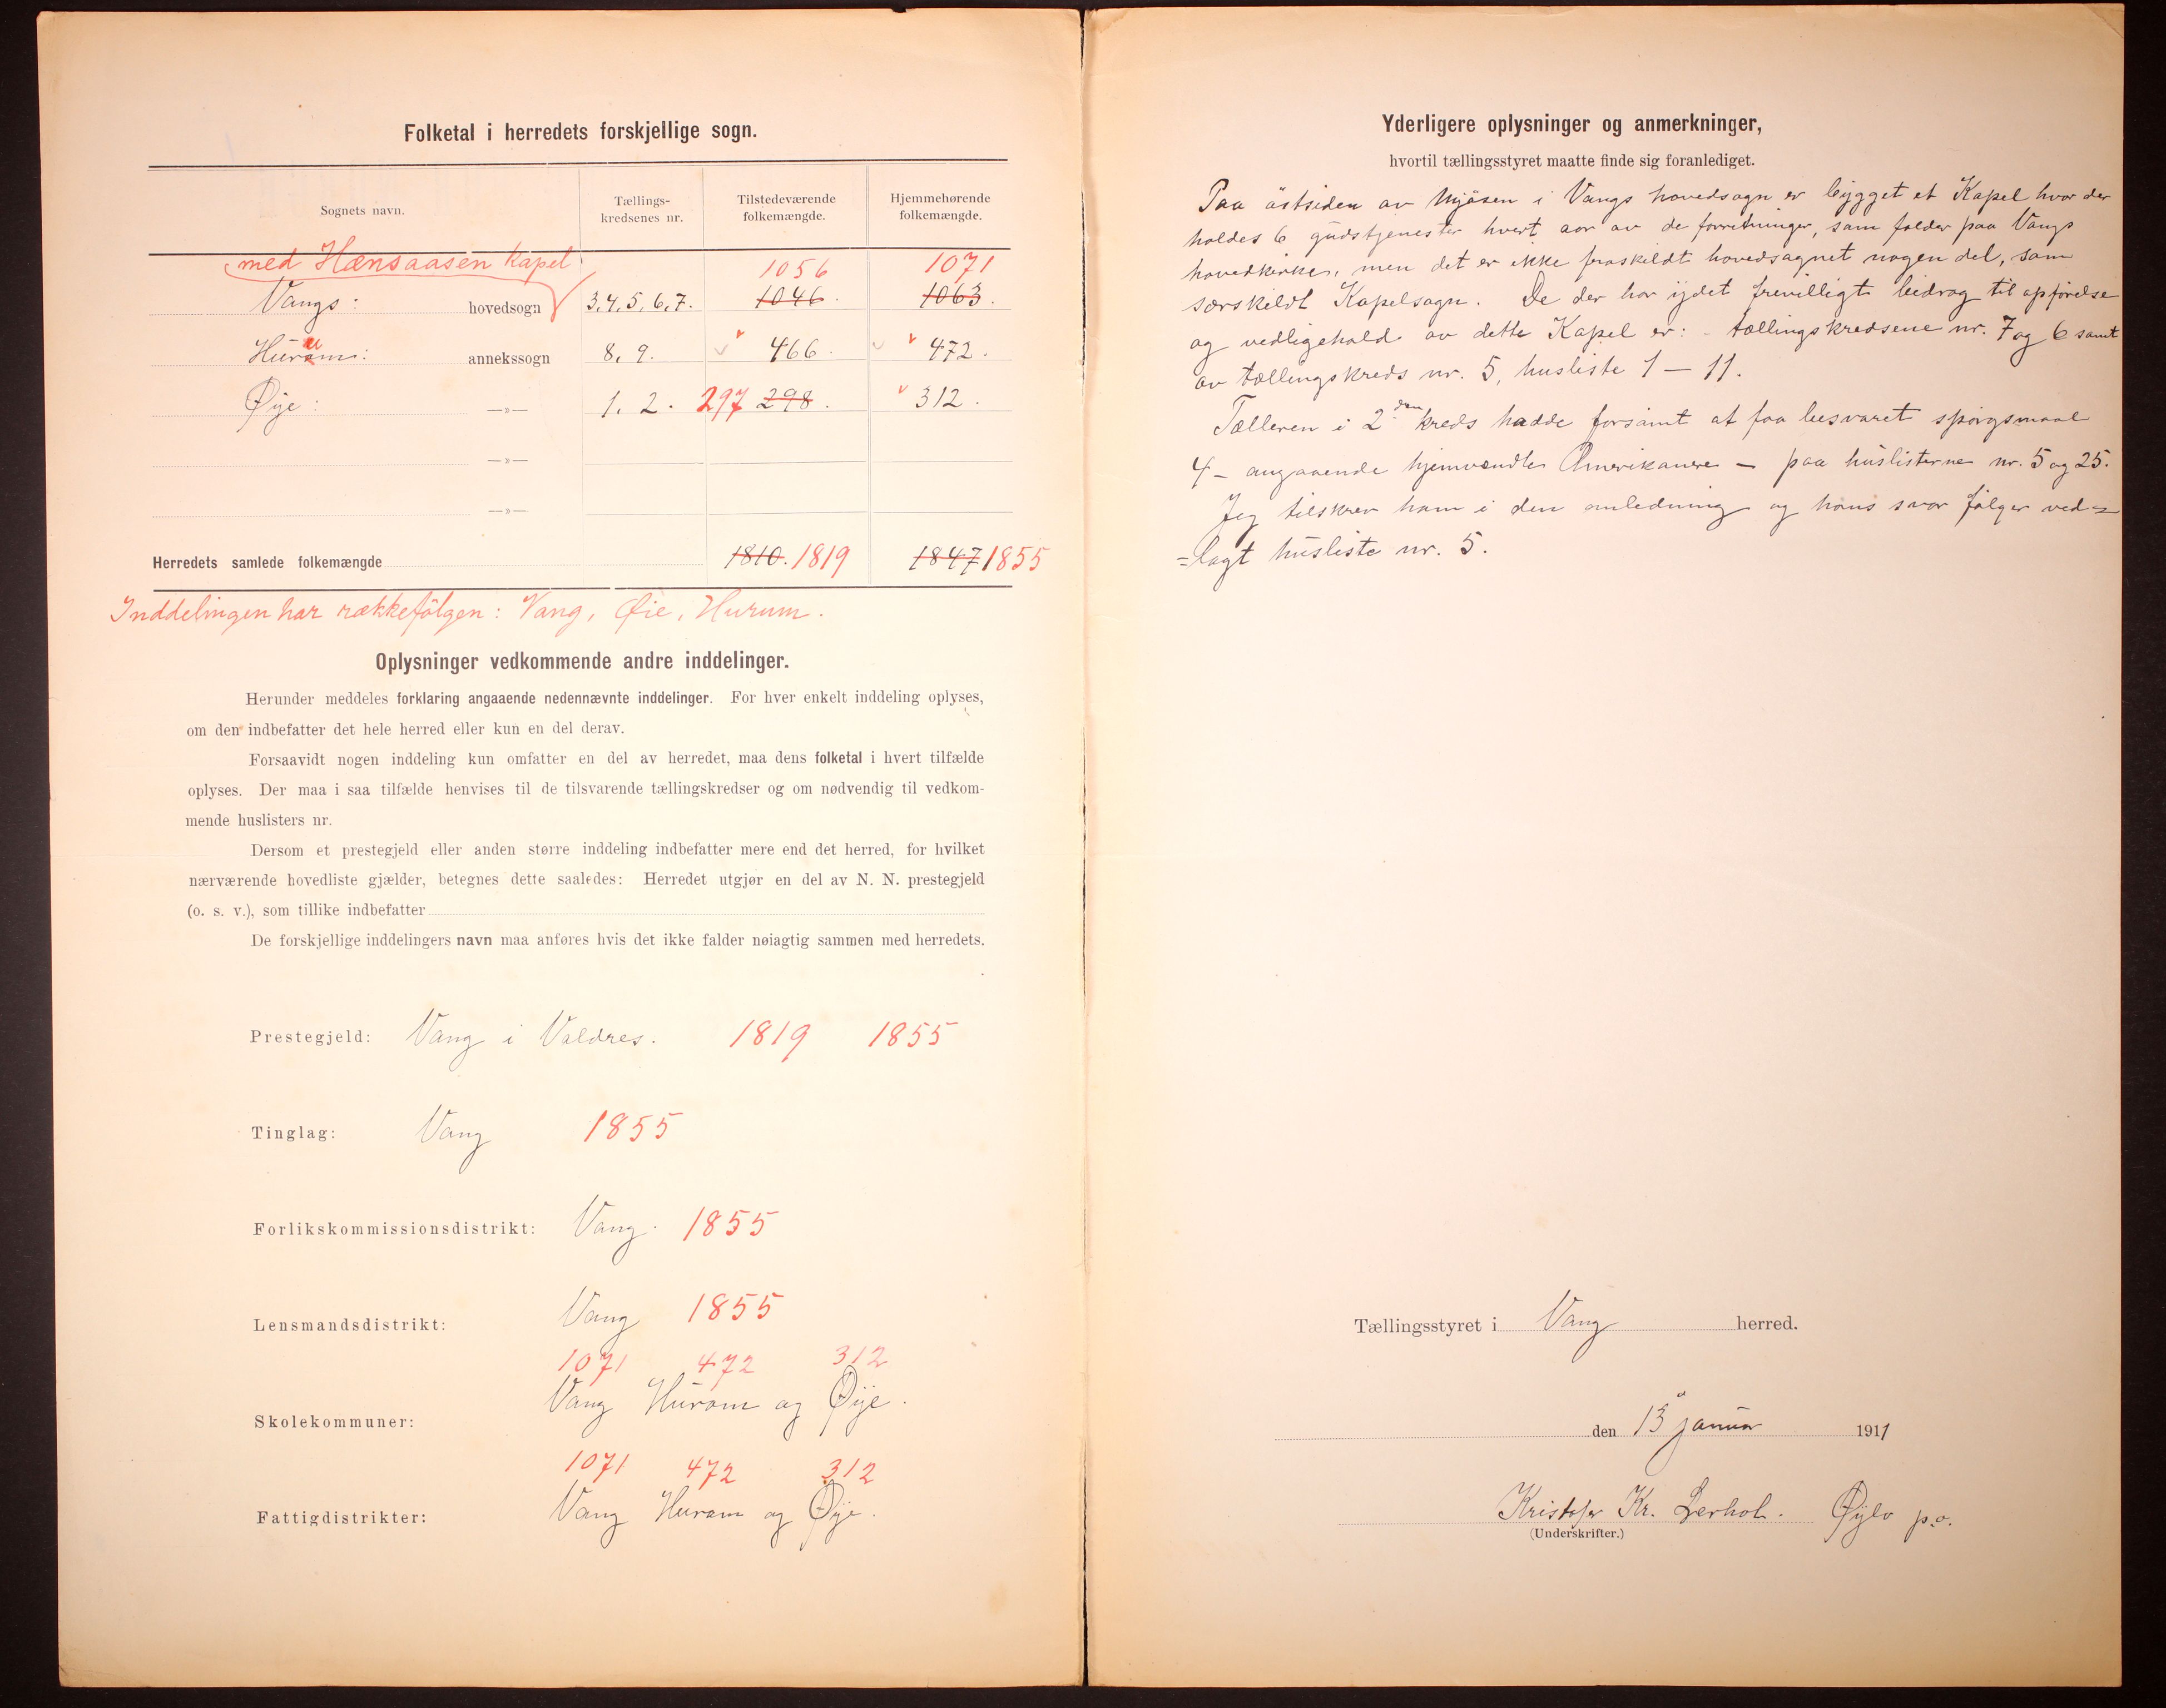 Folketal i herredets forskjellige sogn.
Sognets navn.
Tællings-
kredsenes nr.
Tilstedeværende
folkemængde.
Hjemmehørende
folkemængde.
med Hænsaasen kapel
1056 1071
Vangs: hovedsogn 3,4,5,6,7. 1046. 1063.
Huram: annekssogn 8, 9. 466. 472.
u
Øije: —»— 1. 2. 297 298. 312.
—»—
—»—
Herredets samlede folkemængde 1810. 1819 1847 1855
Inddelingen har rækkefölgen: Vang, Øie, Hurum.
Oplysninger vedkommende andre inddelinger.
Herunder meddeles forklaring angaaende nedennævnte inddelinger. For hver enkelt inddeling oplyses,
om den indbefatter det hele herred eller kun en del derav.
Forsaavidt nogen inddeling kun omfatter en del av herredet, maa dens folketal i hvert tilfælde
oplyses. Der maa i saa tilfælde henvises til de tilsvarende tællingskredser og om nødvendig til vedkom-
mende huslisters nr.
Dersom et prestegjeld eller anden større inddeling indbefatter mere end det herred, for hvilket
nærværende hovedliste gjælder, betegnes dette saaledes: Herredet utgjør en del av N. N. prestegjeld
(o. s. v.), som tillike indbefatter
De forskjellige inddelingers navn maa anføres hvis det ikke falder nøiagtig sammen med herredets.
Prestegjeld: Vang i Valdres. 1819 1855
Tinglag: Vang 1855
Forlikskommissionsdistrikt: Vang. 1855
Lensmandsdistrikt: Vang 1855
1071 472 312
Skolekommuner: Vang Huram og Øije.
1071 472 312
Fattigdistrikter: Vang Huram og Øije.
Yderligere oplysninger og anmerkninger,
hvortil tællingsstyret maatte finde sig foranlediget.
Paa östsiden av Mjösen i Vangs hovedsogn er bygget et Kapel hvor der
holdes 6 gudstjenester hvert aar av de forretninger, som falder paa Vangs
hovedkirke, men det er ikke fraskildt hovedsognet nogen del, som
særskildt Kapelsogn. De der har ijdet frivilligt bidrag til opförelse
og vedligehold av dette Kapel er: - tællingskredsene nr. 7 og 6 samt
av tællingskreds nr. 5, husliste 1 — 11.
Tælleren i 2den kreds hadde forsömt at faa besvaret spörgsmaal
4 - angaaende hjemvendte Amerikanere - paa huslisterne nr. 5 og 25.
Jeg tilskrev ham i den anledning og hans svar fölger ved=
=lagt husliste nr. 5.
Tællingsstyret i Vang herred.
den 13 januar 1911
Kristofer Kr. Lerhol. Øylo p.o.
(Underskrifter.)